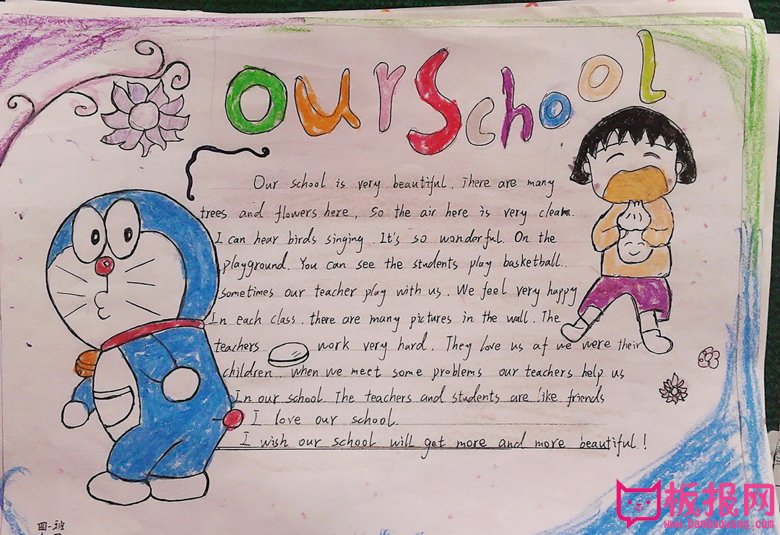 Our School
Our school is very beautiful. There are many
trees and flowers here, So the air here is very clean.
I can hear birds singing. It's so wonderful. On the
playground. You can see the students play basketball.
sometimes our teacher play with us. We feel very happy
In each class, there are many pictures in the wall. The
teachers work very hard. They love us af we were their
children. when we meet some problems our teachers help us
In our school. The teachers and students are like friends
I love our school.
I wish our school will get more and more beautiful!
四一班
板报网
www.banbaowang.com